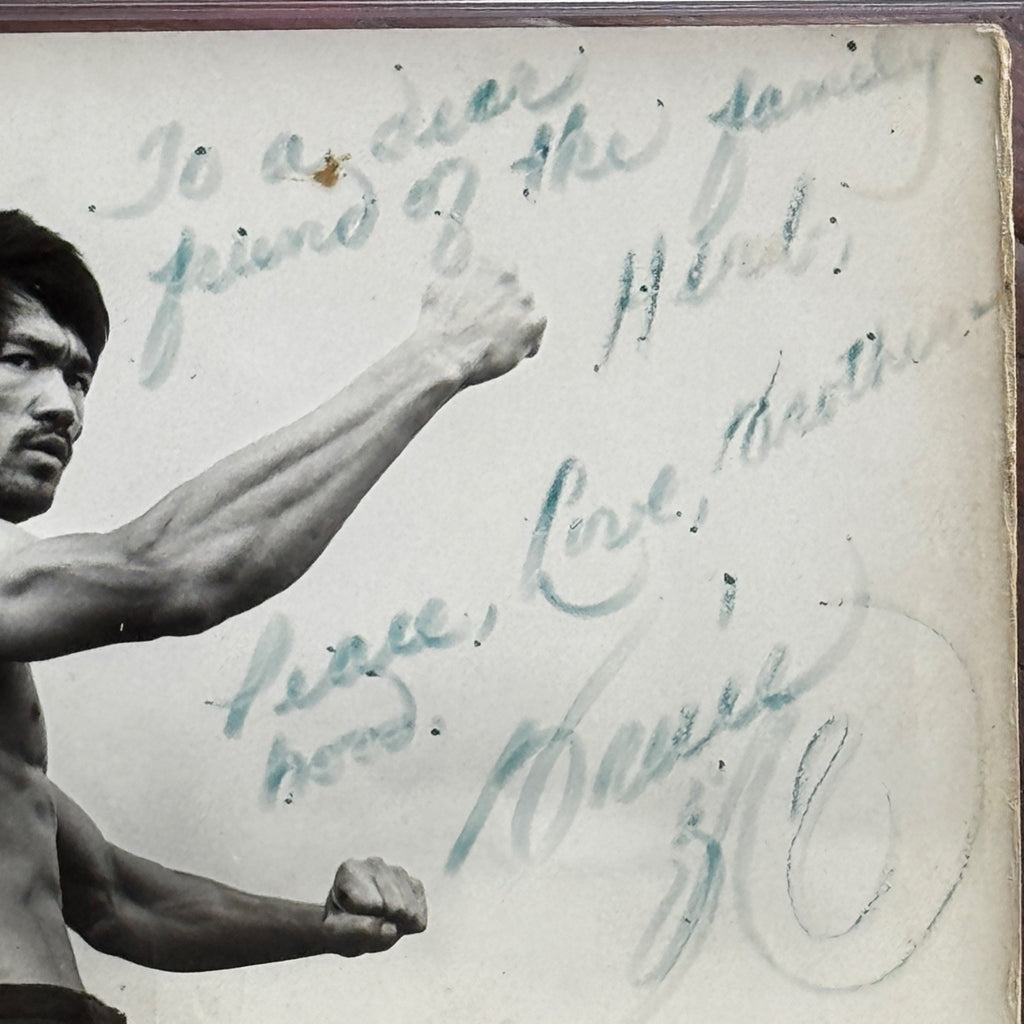 To a dear
friend of the family
Herb,
Peace, Love, Brother-
hood.
Bruce